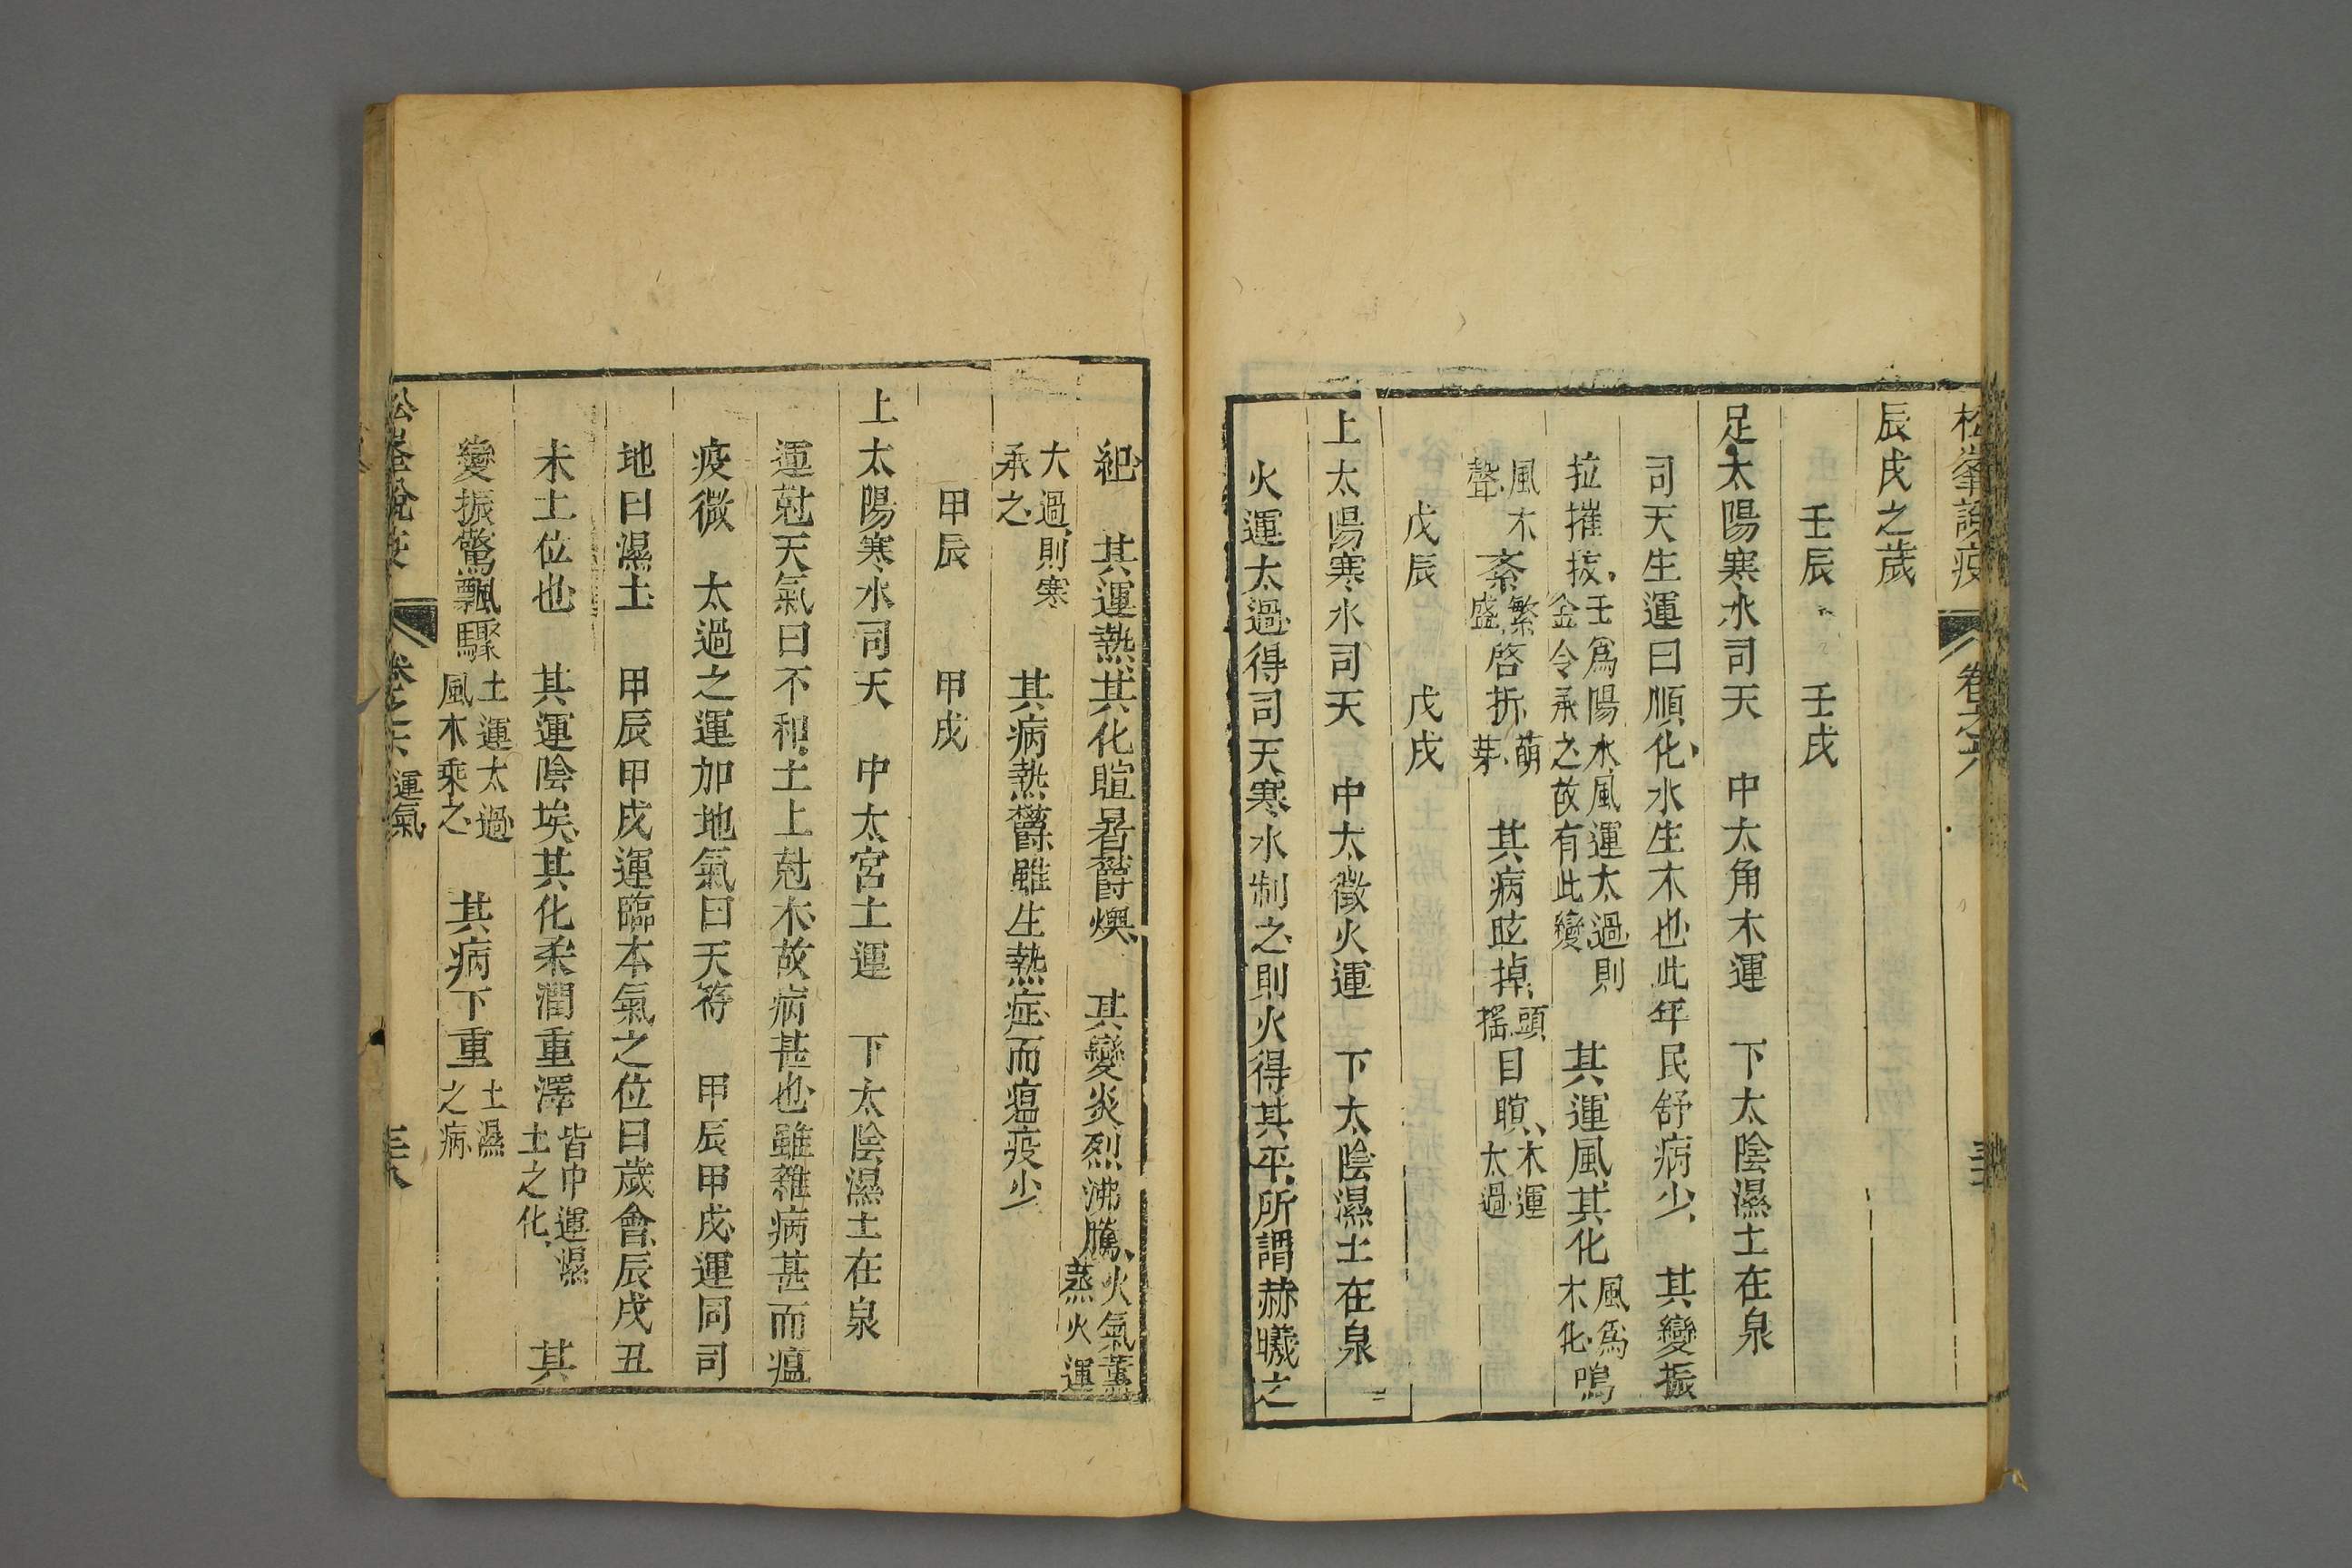 松峯說疫 卷之六
辰戌之歲
壬辰 壬戌
足太陽寒水司天 中太角木運 下太陰濕土在泉
司天生運曰順化水生木也此年民舒病少 其變振
拉摧拔壬爲陽木風運太過則金令承之故有此變 其運風其化風爲木化鳴
風木聲紊繁盛啓拆萌芽 其病眩掉頭搖目瞑木運太過
戊辰 戊戌
上太陽寒水司天 中太徵火運 下太陰濕土在泉
火運太過得司天寒水制之則火得其平所謂赫曦之
紀 其運熱其化暄暑鬱燠 其變炎烈沸騰火氣薰蒸火運
大過則寒承之 其病熱鬱雖生熱症而瘟疫少
甲辰 甲戌
上太陽寒水司天 中太宮土運 下太陰濕土在泉
運尅天氣曰不和土上尅水故病甚也雖雜病甚而瘟
疫微 太過之運加地氣曰天符 甲辰甲戌運同司
地曰濕土 甲辰甲戌運臨本氣之位曰歲會辰戌丑
未土位也 其運陰埃其化柔潤重澤皆中運濕土之化 其
變振驚飄驟土運太過風木乘之 其病下重土濕之病
松峯說疫 卷之六 運氣 三十八